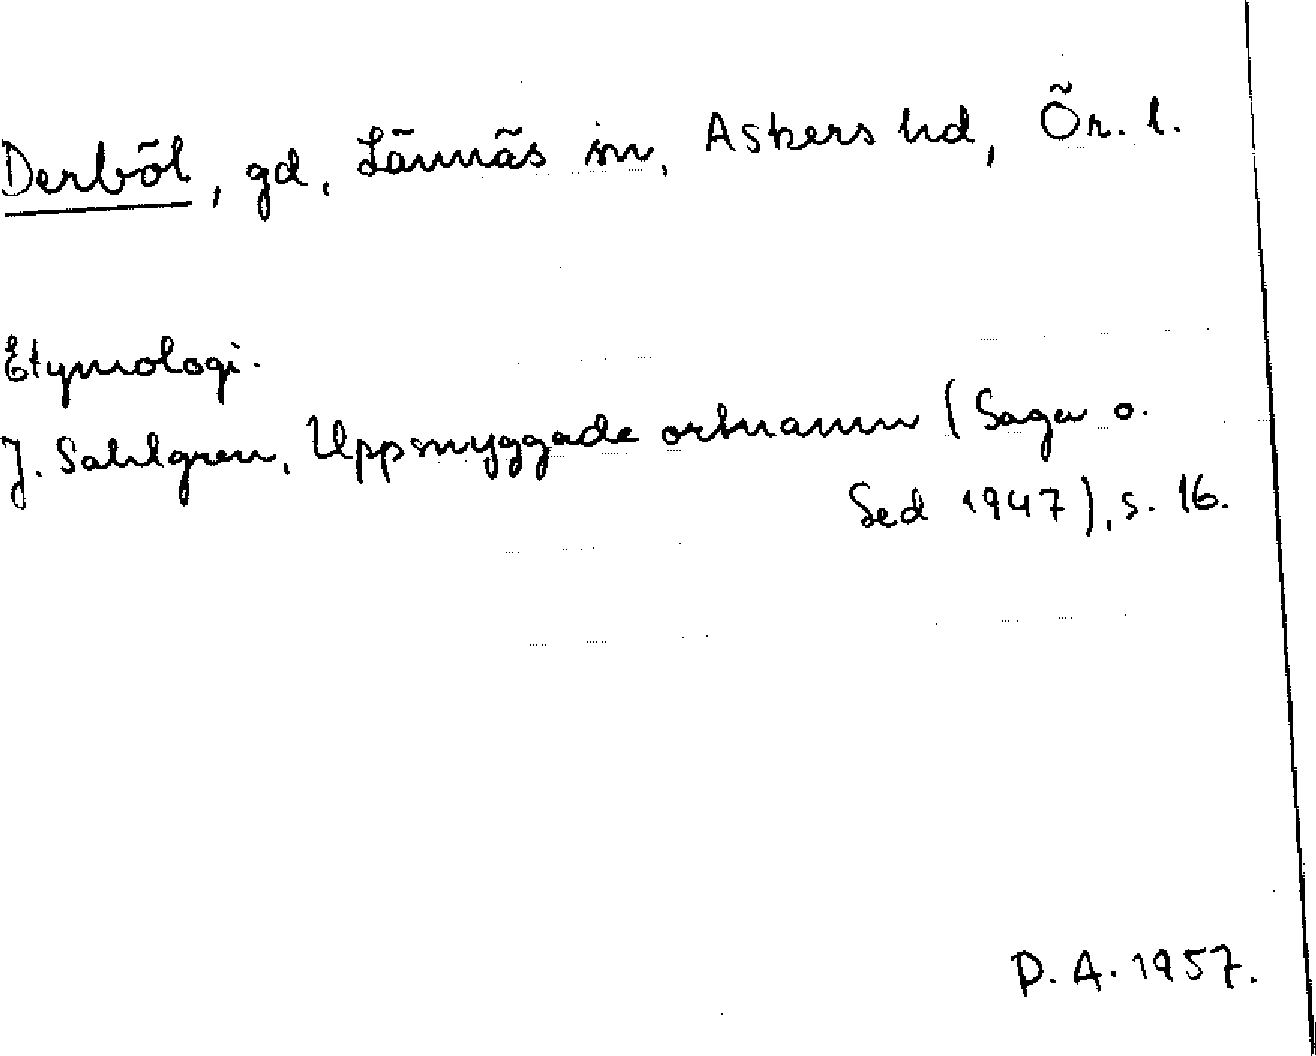 Derböl, gd, Lännäs sn, Askers hd, Ör. l.
Etymologi.
J. Sahlgren, Uppsnyggade ortnamn (Saga o.
Sed 1947), s. 16.
D. A. 1957.